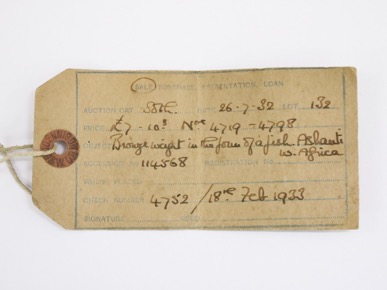 SALE, PURCHASE, PRESENTATION, LOAN
AUCTION CAT. DATE 26.7.32 LOT 132
£7-10s Nos 4719-4798
Bronze weight in the form of a fish. Ashanti
W. Africa
ACCESSION No. 114568 REGISTRATION No.
WHERE PLACED
CHECK NUMBER 4752 / 18th Feb 1933
SIGNATURE